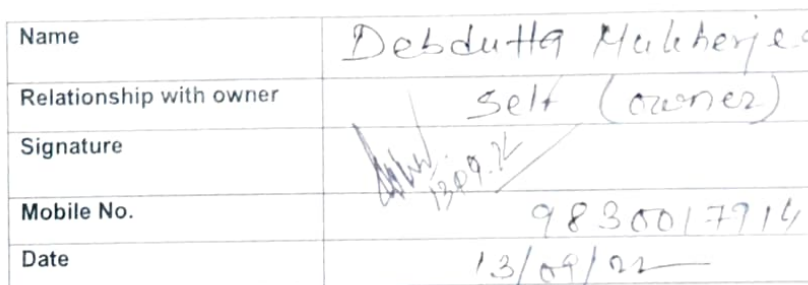 Name Debdutta Mukherjee
Relationship with owner Self (owner)
Signature 13.09.22
Mobile No. 9830017914
Date 13/09/22